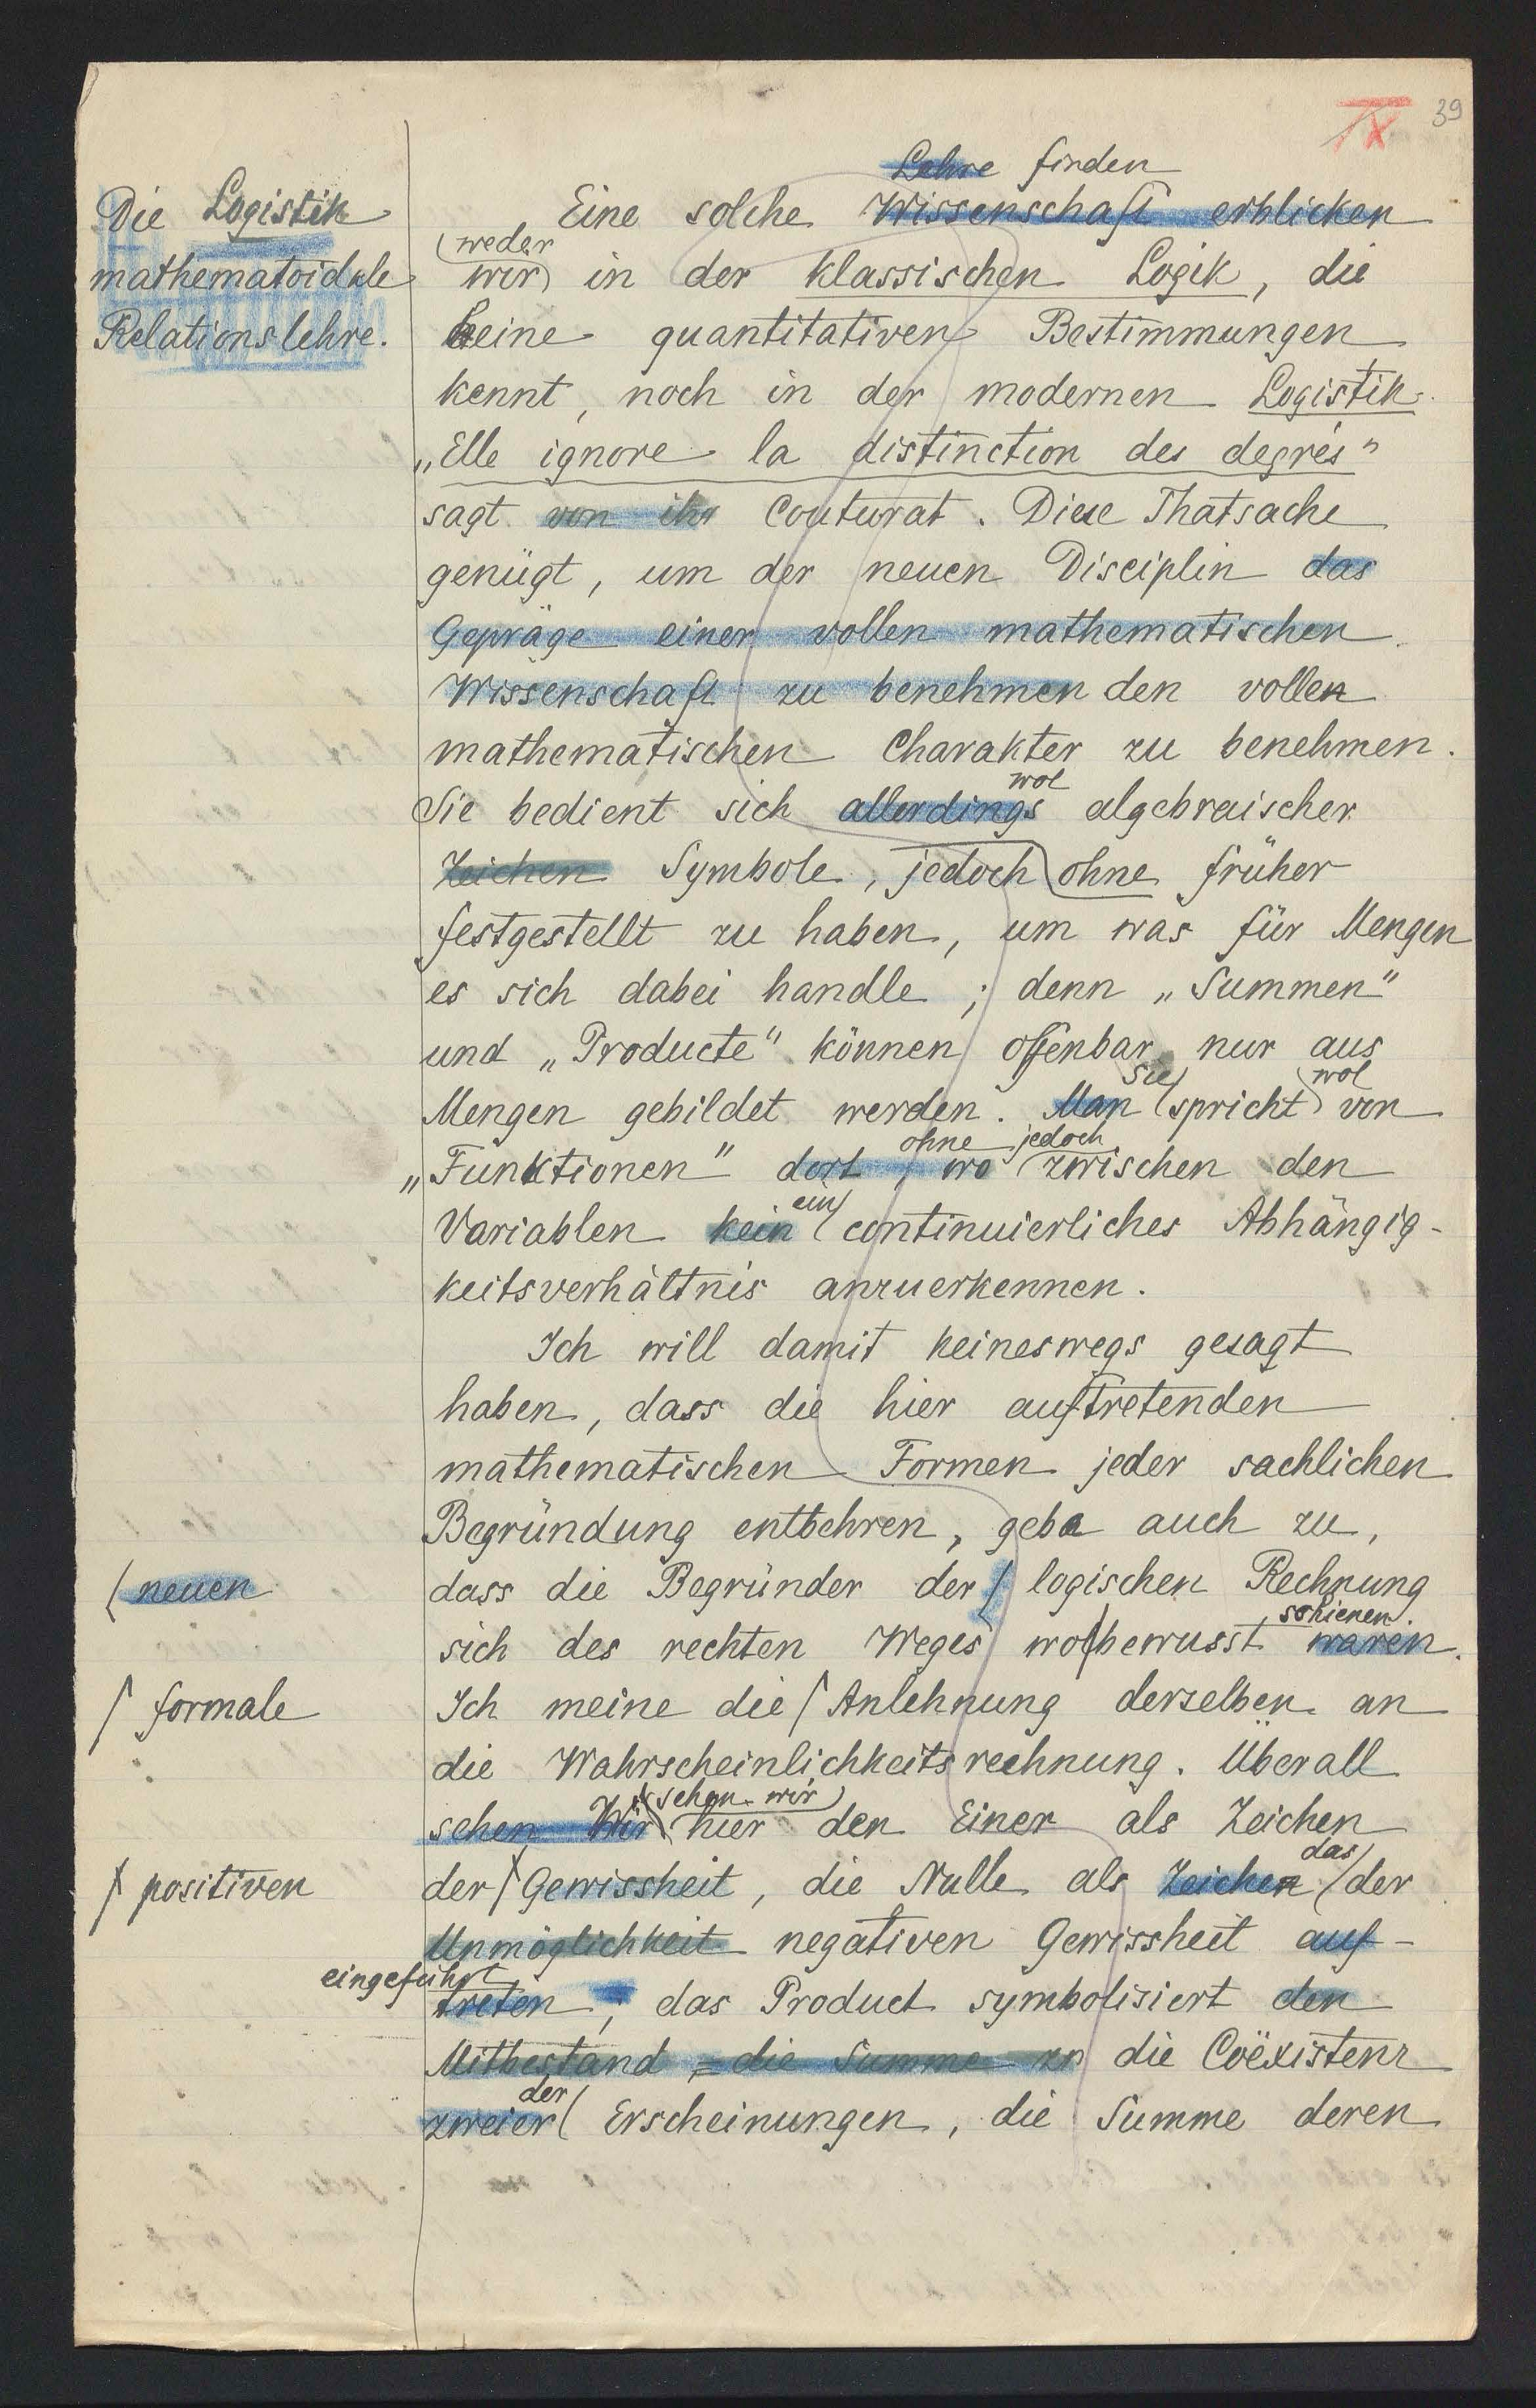 39
IV
Lehre finden
Die Logistik
mathematoidale
Relationslehre.
Eine solche Wissenschaft erblicken
weder
wir in der klassischen Logik, die
keine quantitativen Bestimmungen
kennt, noch in der modernen Logistik.
„Elle ignore la distinction des degrés"
sagt von ihr Couturat. Diese Thatsache
genügt, um der neuen Disciplin das
Gepräge einer vollen mathematischen
Wissenschaft zu benehmen den vollen
mathematischen Charakter zu benehmen.
wol
Sie bedient sich allerdings algebraischer
Zeichen Symbole, jedoch ohne früher
festgestellt zu haben, um was für Mengen
es sich dabei handle; denn „Summen"
und „Producte" können offenbar nur aus
Sie wol
Mengen gebildet werden. Man spricht von
ohne jedoch
„Funktionen" dort, wo zwischen den
ein
Variablen kein continuierliches Abhängig-
keitsverhältnis anzuerkennen.
Ich will damit keineswegs gesagt
haben, dass die hier auftretenden
mathematischen Formen jeder sachlichen
Begründung entbehren, gebe auch zu,
neuen
dass die Begründer der logischen Rechnung
schienen.
sich des rechten Weges wol bewusst waren.
formale
Ich meine die Anlehnung derselben an
die Wahrscheinlichkeitsrechnung. Überall
sehen wir
sehen Wir hier den Einer als Zeichen
das
positiven
der Gewissheit, die Nulle als Zeichen der
Unmöglichkeit negativen Gewissheit auf-
eingeführt
treten, das Product symbolisiert den
Mitbestand = die Summe zw die Coëxistenz
der
zweier Erscheinungen, die Summe deren